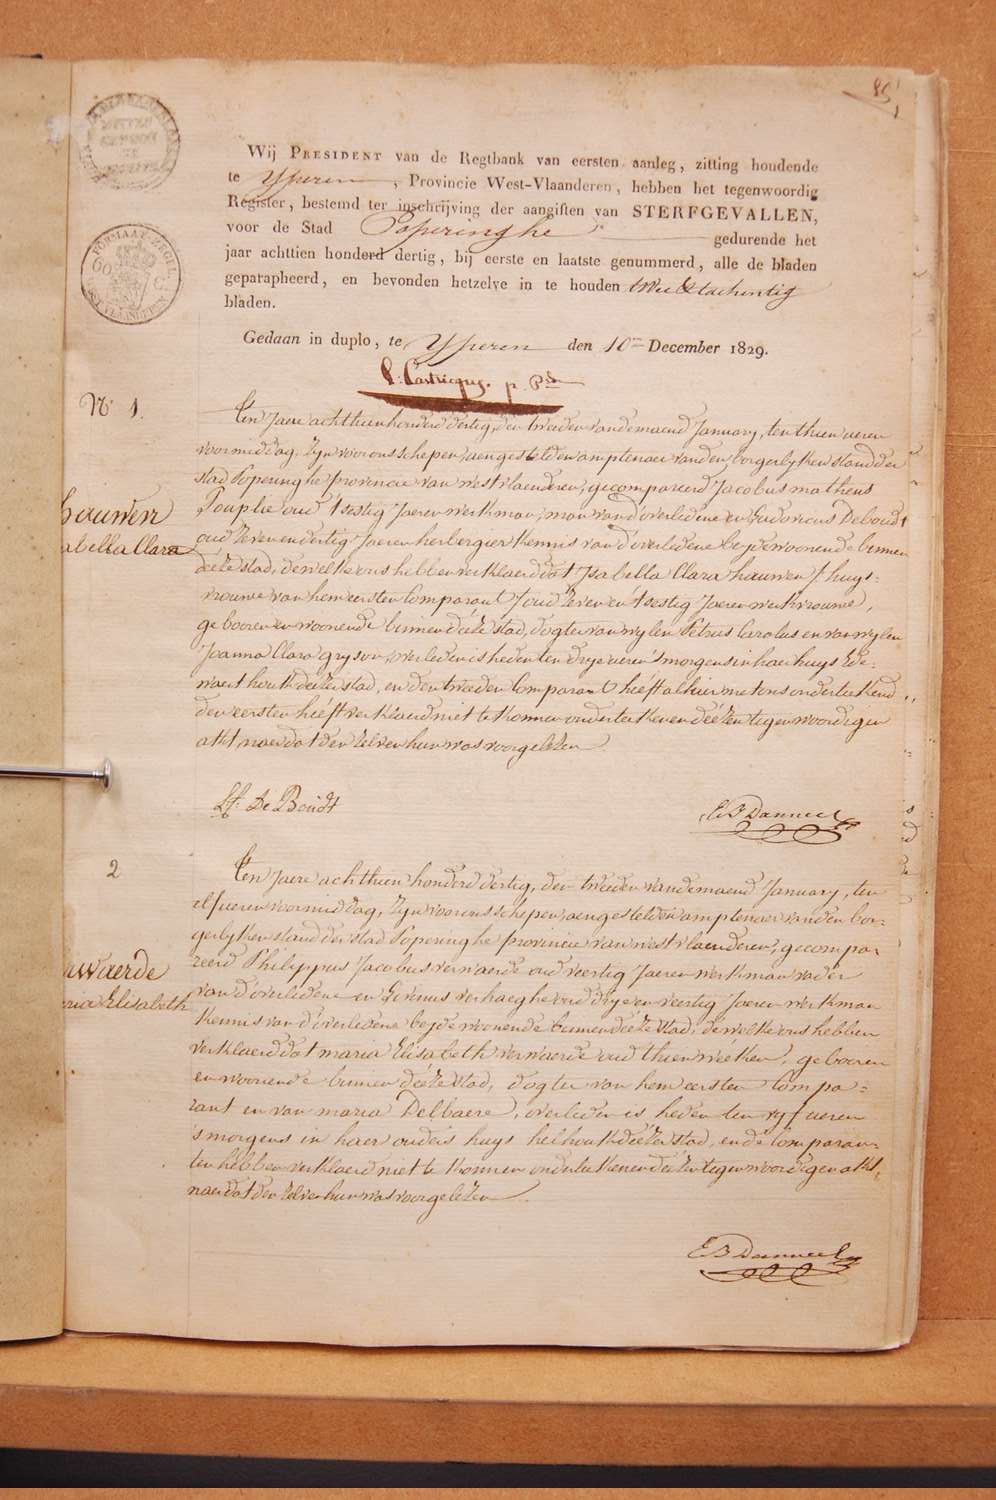 Wij PRESIDENT van de Regtbank van eersten aanleg, zitting houdende
te Yperen, Provincie West-Vlaanderen, hebben het tegenwoordig
Register, bestemd ter inschrijving der aangiften van STERFGEVALLEN,
voor de Stad Poperinghe gedurende het
jaar achttien honderd dertig, bij eerste en laatste genummerd, alle de bladen
geparapheerd, en bevonden hetzelve in te houden twee & tachentig
bladen.
Gedaan in duplo, te Yperen den 10 December 1829.
FORMAAT-ZEGEL
N° 1.
houwen
abella Clara
Ten Jaere achthien honderd dertig, den tweeden van de maend January, ten thien ueren
voormiddag, Zyn voor ons schepen, aengestelden amptenaer van den borgerlyken stand der
stad Poperinghe provincie van westvlaenderen, gecompareerd Jacobus matheus
oud tsestig Jaeren werkman, man van d'overledene en Ludovicus Deboudt
oud Zevenendertig Jaeren herbergier kennis van d'overledene beyde woonende binnen
déeze stad, dewelke ons hebben verklaerd dat Isabella Clara houwen huys-
vrouwe van hem eersten Comparant oud Zeven en tsestig Jaeren werkvrouwe,
gebooren en woonende binnen déeze stad, dogter van wylen Petrus Carolus en van wylen
Joanna Clara gryson, overleden is heden ten drye ueren 's morgens in haer huys
deezer stad, en den tweeden Comparant héeft alhier met ons onderteekend
den eersten héeft verklaerd niet te konnen onderteekenen déezen tegenwoordigen
akt naer dat den zelven hun was voorgelezen.
De Boudt
E B Danneel
2
waerde
ria Elisabeth
Ten Jaere achthien honderd dertig, den tweeden van de maend January, ten
elf ueren voormiddag, Zyn voor ons schepen, aengestelden amptenaer van den bor-
gerlyken stand der stad Poperinghe provincie van westvlaenderen, gecompa-
reerd Philippus Jacobus verwaerde oud veertig Jaeren werkman vader
van d'overledene en Livinus verhaeghe oud drye en veertig Jaeren werkman
kennis van d'overledene beyde woonende binnen déeze stad, dewelke ons hebben
verklaerd dat maria Elisabeth verwaerde oud thien wéeken, gebooren
en woonende binnen déeze stad, dogter van hem eersten Compa-
rant en van maria Delbaere, overleden is heden ten vyf ueren
's morgens in haer ouders huys helhoek déezer stad, en de Comparan-
ten hebben verklaerd niet te konnen onderteekenen déezen tegenwoordigen akt,
naer dat den zelven hun was voorgelezen.
E B Danneel